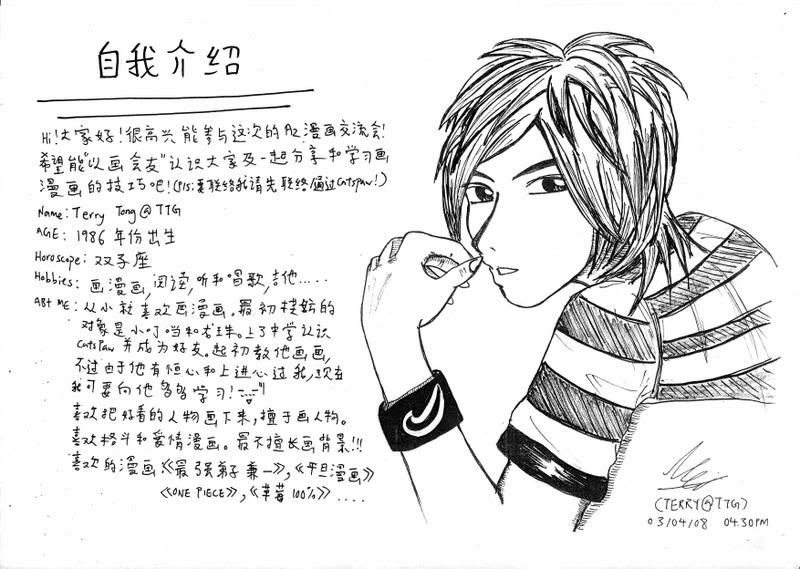 自我介绍
Hi!大家好!很高兴能参与这次的A2漫画交流会!
希望能"以画会友"认识大家及一起分享和学习画
漫画的技巧吧!(P/S:要联络我请先联络/通过CatsPaw!)
Name: Terry Tong@TTG
AGE: 1986年份出生
Horoscope: 双子座
Hobbies: 画漫画,阅读,听和唱歌,吉他.....
ABt ME: 从小就喜欢画漫画。最初模仿的
对象是小叮当和龙珠。上了中学认识
CatsPaw并成为好友。起初教他画画,
不过由于他有恒心和上进心过我,现在
我可要向他多多学习!
喜欢把好看的人物画下来,擅于画人物。
喜欢格斗和爱情漫画。最不擅长画背景!!!
喜欢的漫画《最强弟子兼一》,《平旦漫画》
《ONE PIECE》,《草莓100%》....
(TERRY@TTG)
03/04/08 04.30PM